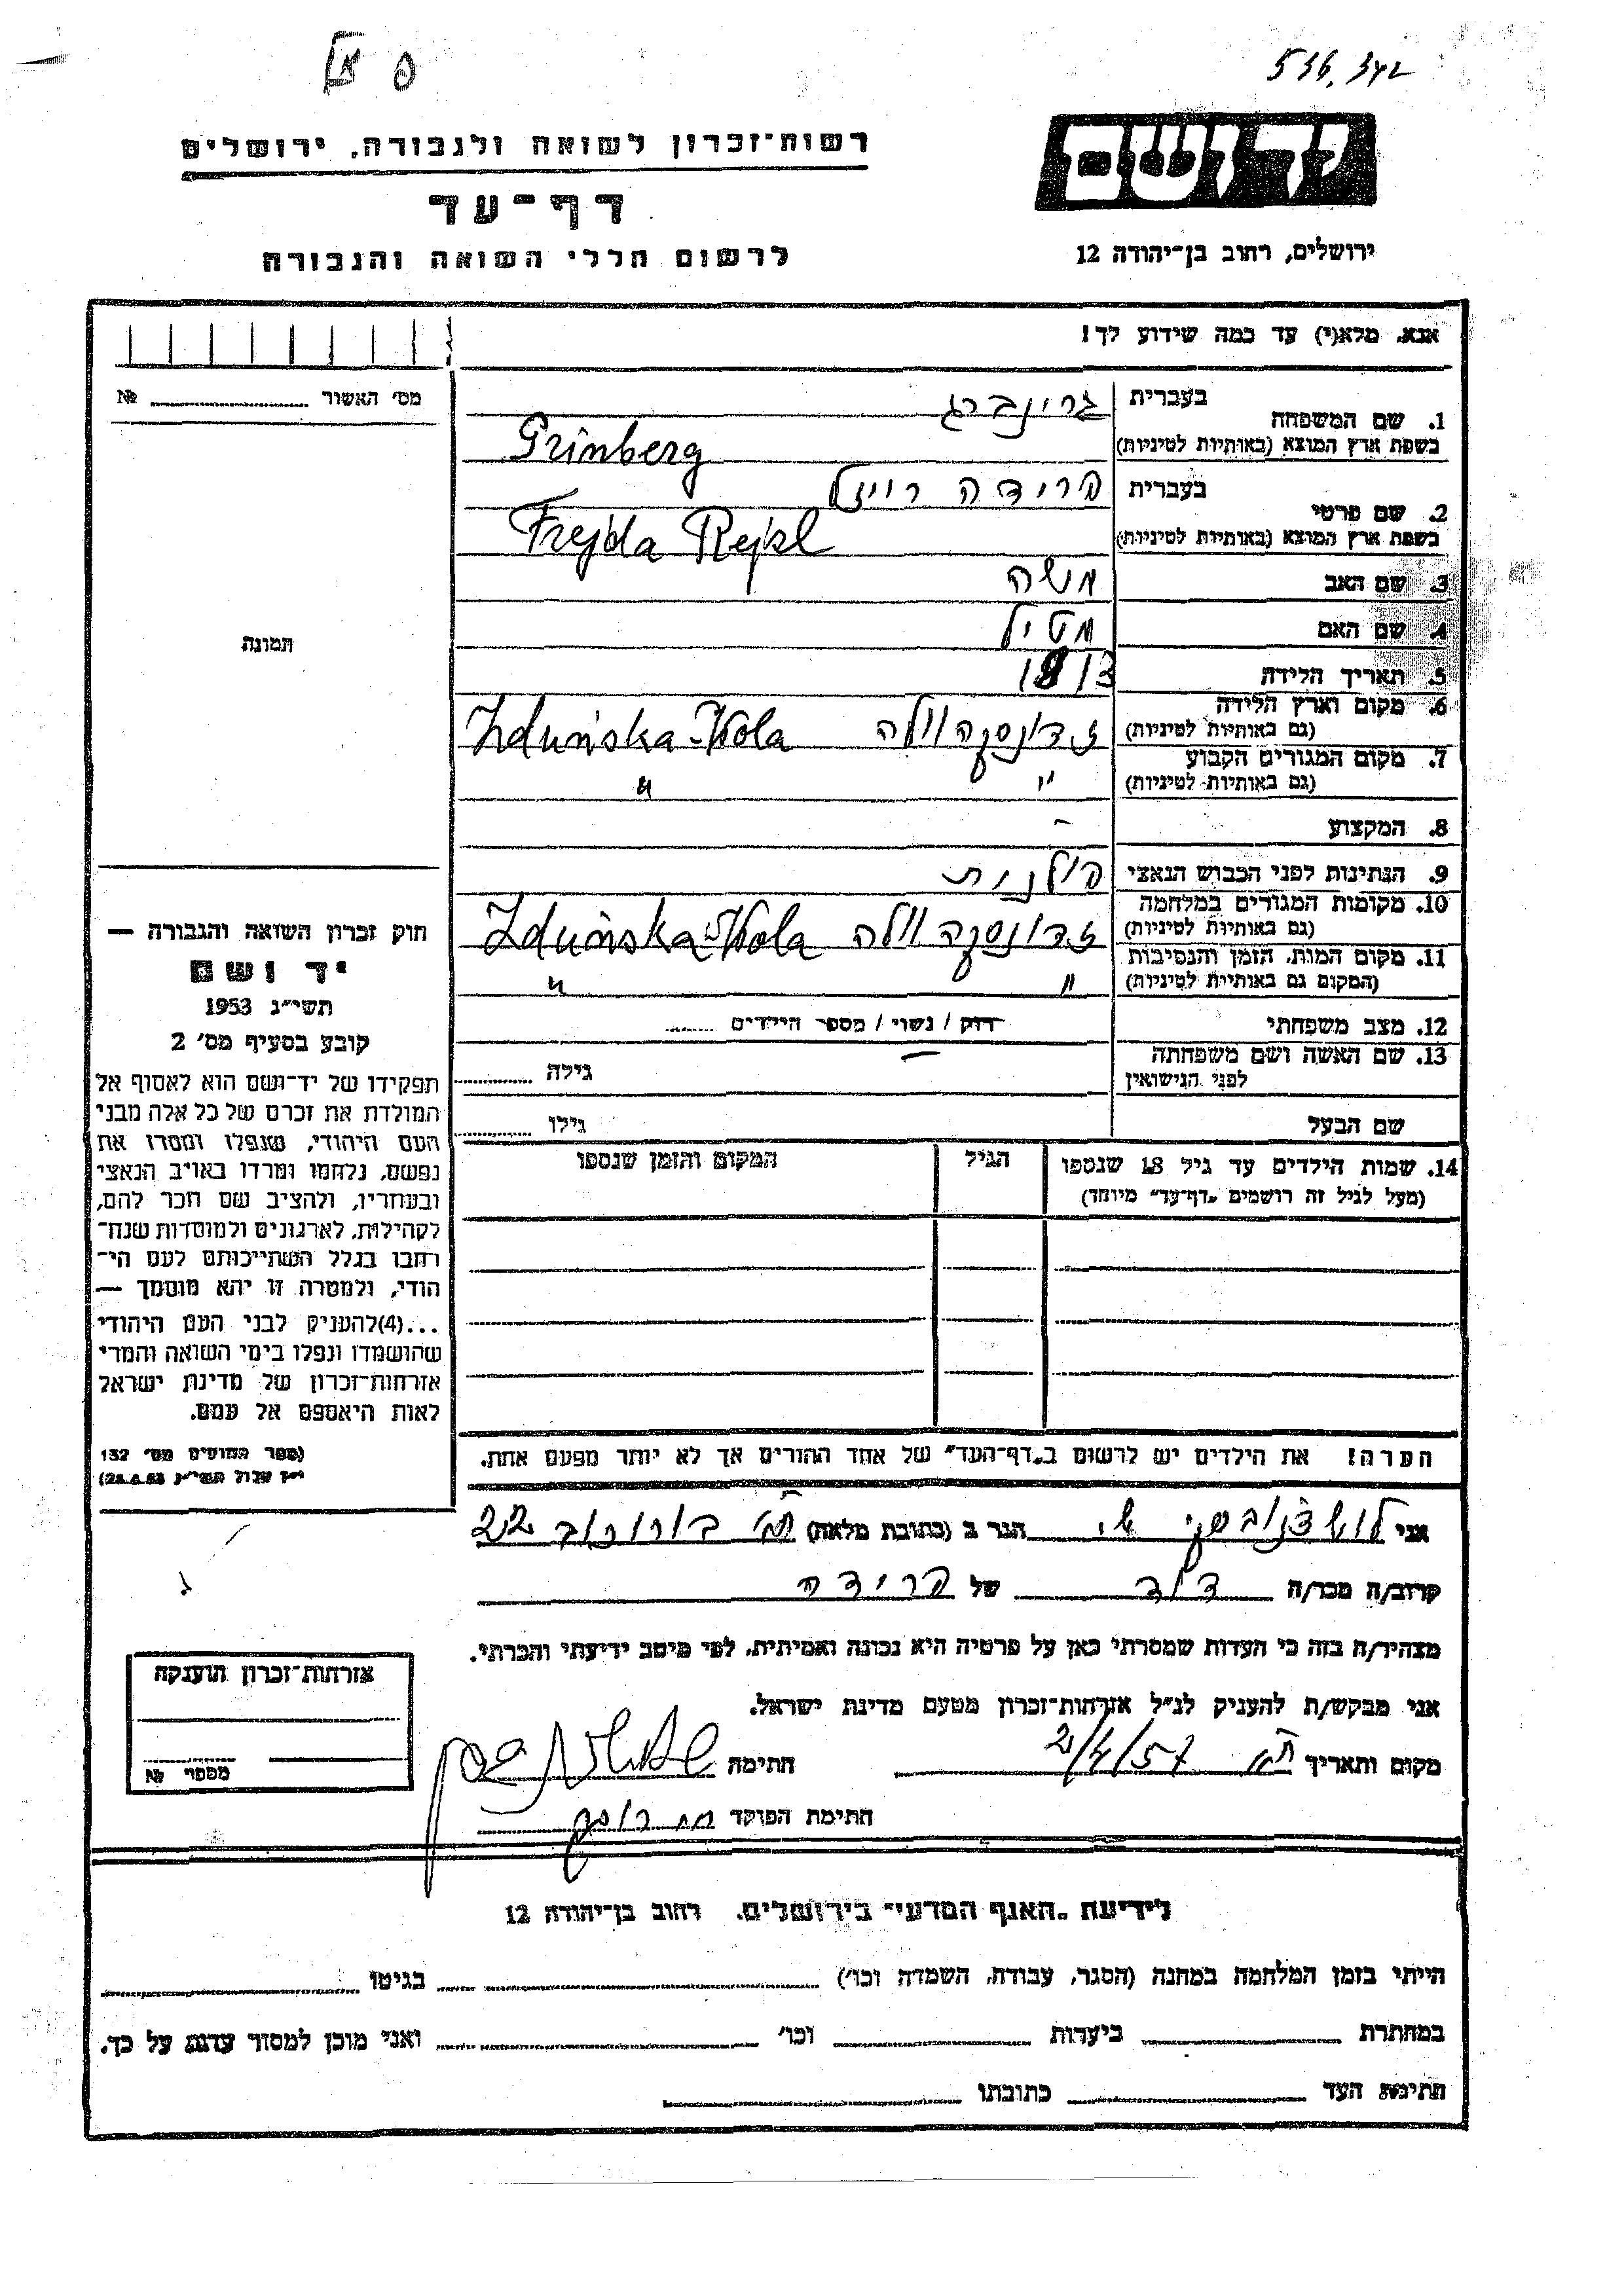 536,342
רשות־זכרון לשואה ולגבורה, ירושלים
יד ושם
דף־עד
לרשום חללי השואה והגבורה
ירושלים, רחוב בן־יהודה 12
אנא, מלא(י) עד כמה שידוע לך!
מס׳ האשור № 
1. שם המשפחה בעברית גרינברג
בשפת ארץ המוצא (באותיות לטיניות) Grinberg
2. שם פרטי בעברית פרידה רייזל
בשפת ארץ המוצא (באותיות לטיניות) Frejda Rejzl
3. שם האב משה
4. שם האם מטיל
5. תאריך הלידה
6. מקום וארץ הלידה (גם באותיות לטיניות) זדונסקה וולה Zduńska-Wola
7. מקום המגורים הקבוע (גם באותיות לטיניות) " "
8. המקצוע -
9. הנתינות לפני הכבוש הנאצי פולנית
10. מקומות המגורים במלחמה (גם באותיות לטיניות) זדונסקה וולה Zduńska-Wola
11. מקום המות, הזמן והנסיבות (המקום גם באותיות לטיניות) " "
12. מצב משפחתי רווק / נשוי / מספר הילדים
13. שם האשה ושם משפחתה לפני הנישואין - גילה
שם הבעל גילו
14. שמות הילדים עד גיל 18 שנספו הגיל המקום והזמן שנספו
(מעל לגיל זה רושמים „דף־עד" מיוחד)
הערה! את הילדים יש לרשום ב„דף־העד" של אחד ההורים אך לא יותר מפעם אחת.
תמונה
חוק זכרון השואה והגבורה —
יד ושם
תשי״ג 1953
קובע בסעיף מס׳ 2
תפקידו של יד־ושם הוא לאסוף אל
המולדת את זכרם של כל אלה מבני
העם היהודי, שנפלו ומסרו את
נפשם, נלחמו ומרדו באויב הנאצי
ובעוזריו, ולהציב שם וזכר להם,
לקהילות, לארגונים ולמוסדות שנח־
רבו בגלל השתייכותם לעם הי־
הודי, ולמטרה זו יהא מוסמך —
...(4)להעניק לבני העם היהודי
שהושמדו ונפלו בימי השואה והמרי
אזרחות־זכרון של מדינת ישראל
לאות היאספם אל עמם.
(ספר החוקים מס׳ 132
י״ז אלול תשי״ג 28.8.53)
אני הגר ב (כתובת מלאה) ת״א בורוכוב 22
קרוב/ה מכר/ה דוד של פרידה
מצהיר/ה בזה כי העדות שמסרתי כאן על פרטיה היא נכונה ואמיתית, לפי מיטב ידיעתי והכרתי.
אני מבקש/ת להעניק לנ״ל אזרחות־זכרון מטעם מדינת ישראל.
מקום ותאריך ת״א 2/4/57 חתימה
חתימת הפוקד
אזרחות־זכרון הוענקה
מספר №
לידיעת „האגף המדעי" בירושלים, רחוב בן־יהודה 12
הייתי בזמן המלחמה במחנה (הסגר, עבודה, השמדה וכו׳) בגיטו
במחתרת ביערות וכו׳ ואני מוכן למסור עדות על כך.
חתימת העד כתובתו